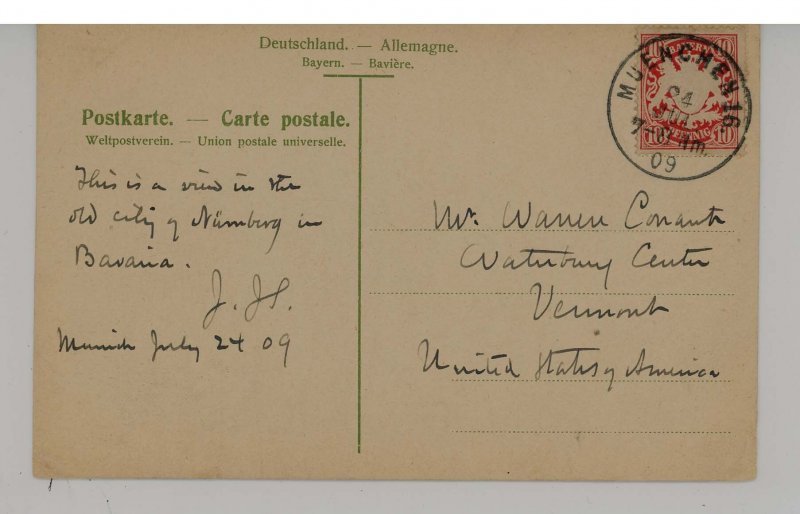 Deutschland. — Allemagne.
Bayern. — Bavière.
Postkarte. — Carte postale.
Weltpostverein. — Union postale universelle.
This is a view in the
old city of Nürnberg in
Bavaria.
J. JS.
Munich July 24 09
BAYERN
10 10
PFENNIG
10 10
MUENCHEN 16.
24
JUL.
09
Mr. Warren Conant
Waterbury Center
Vermont
United States of America